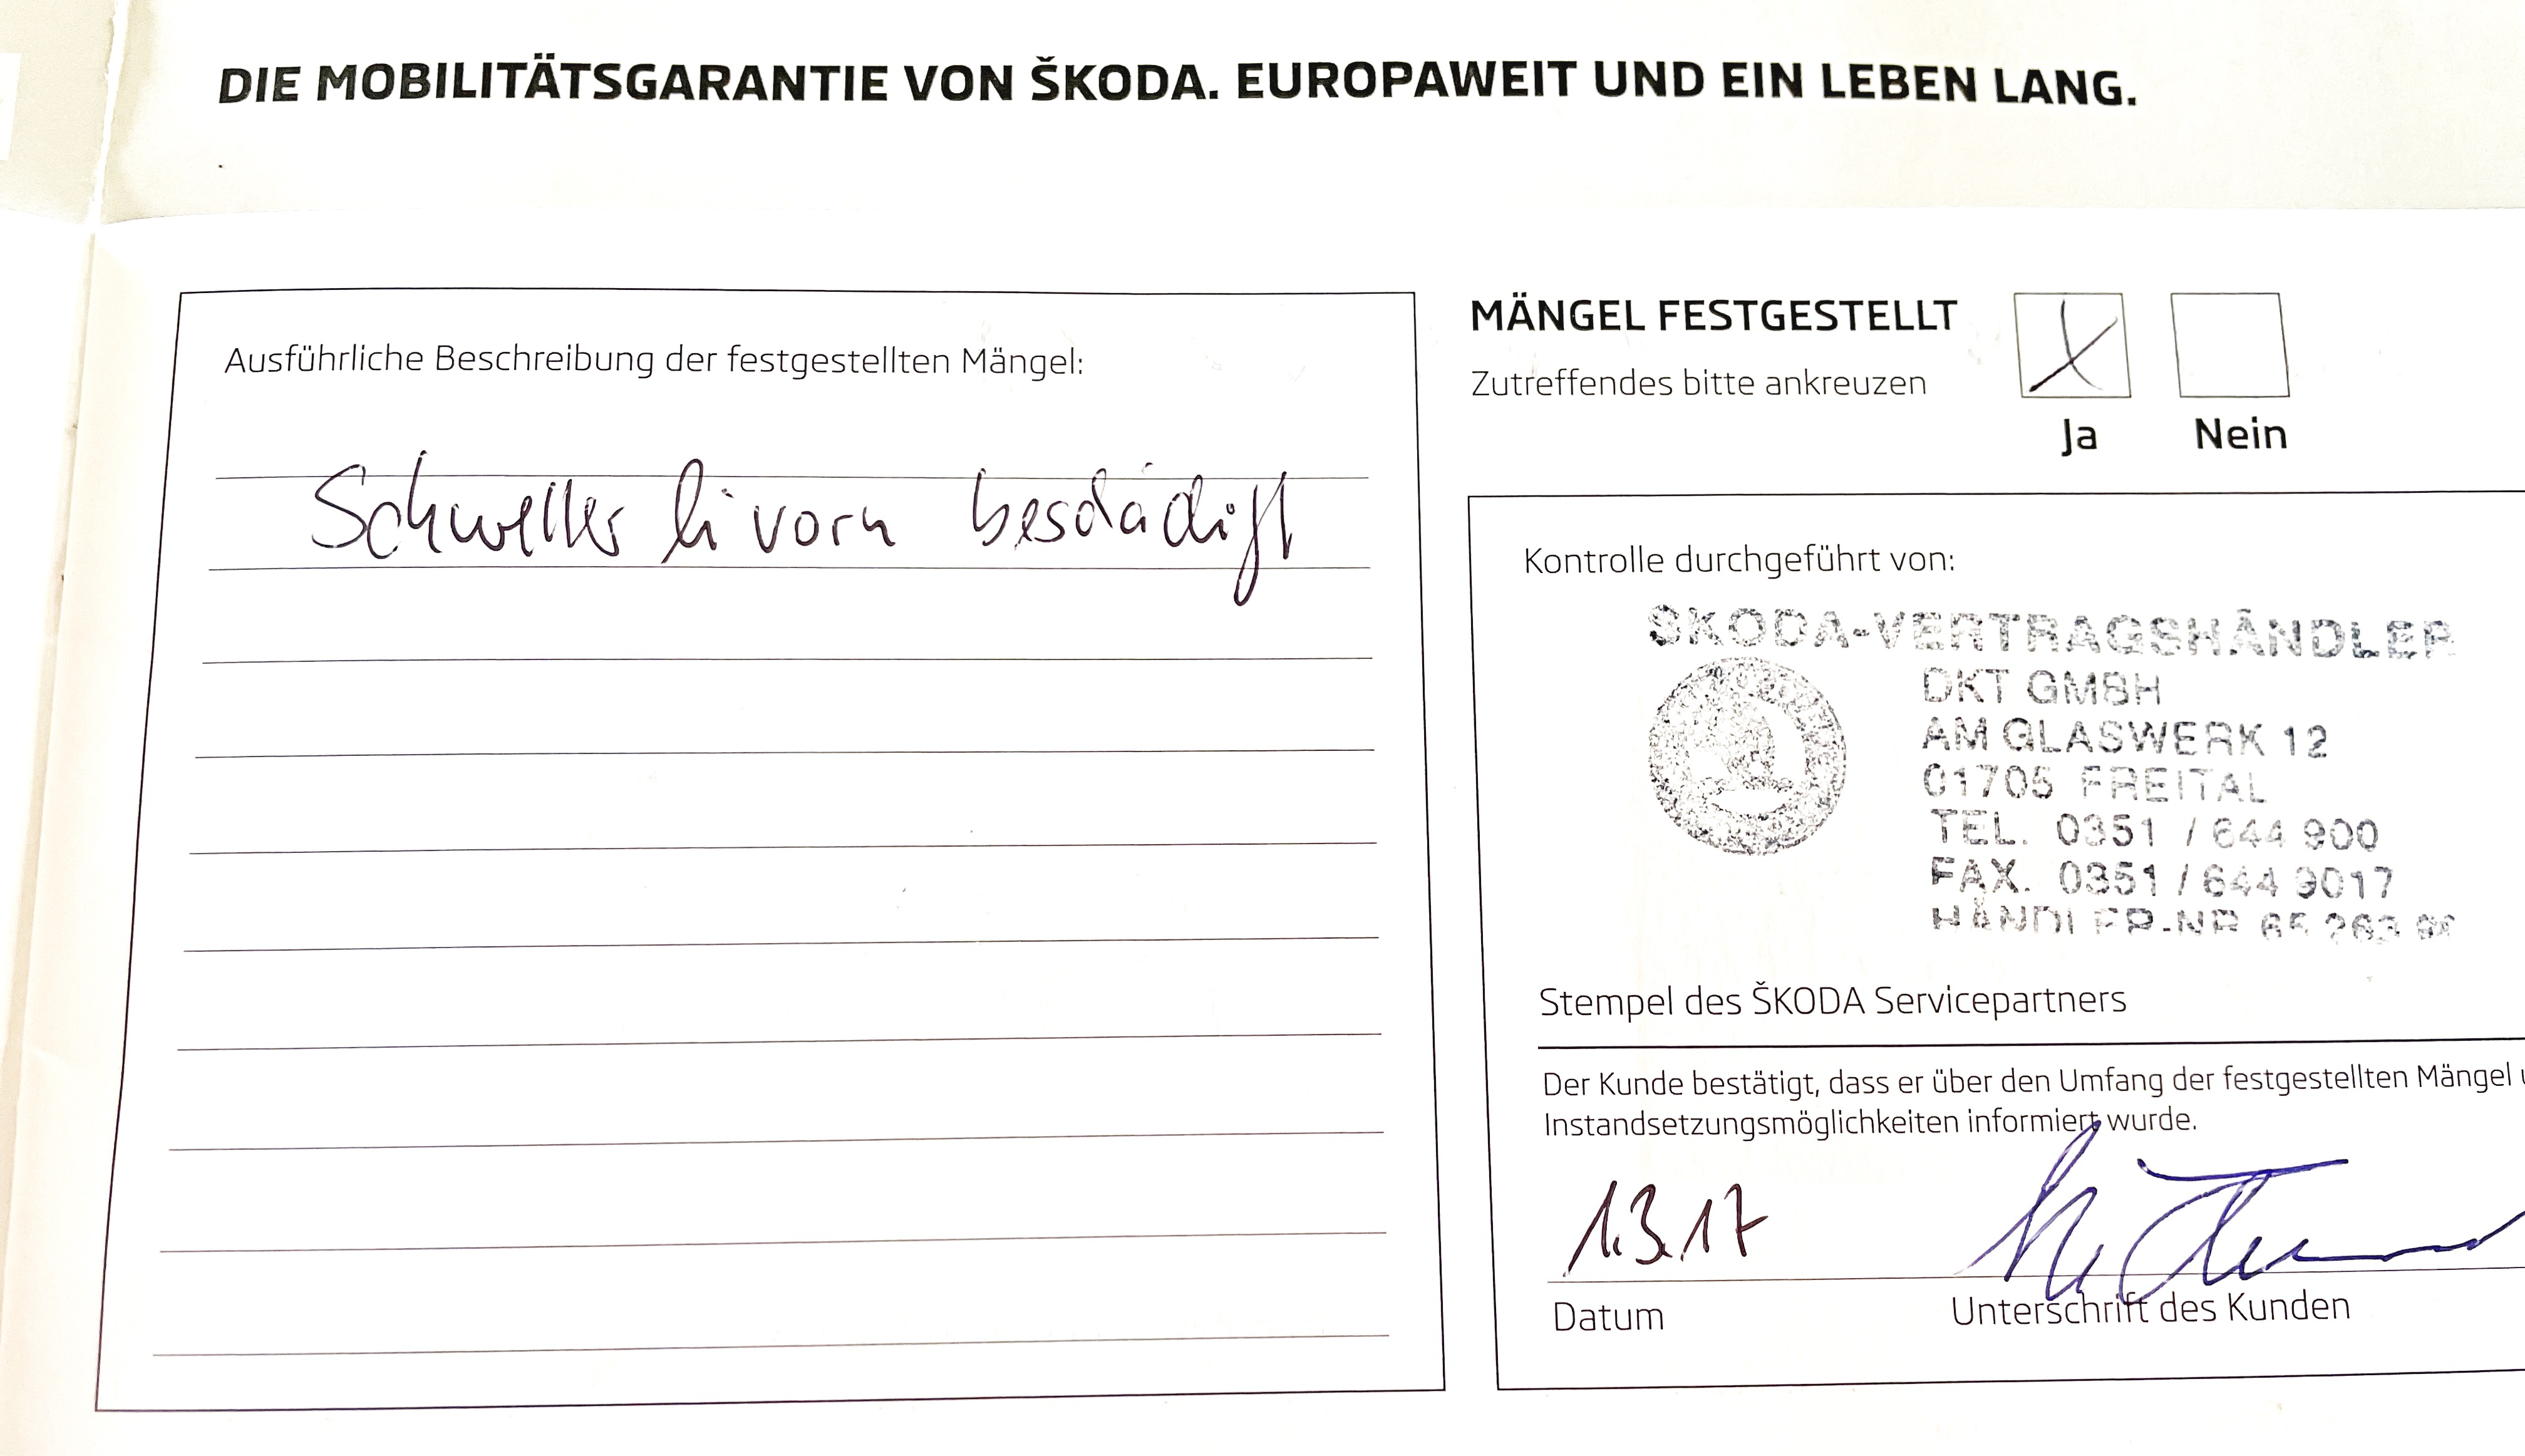 DIE MOBILITÄTSGARANTIE VON ŠKODA. EUROPAWEIT UND EIN LEBEN LANG.
Ausführliche Beschreibung der festgestellten Mängel:
Schweller li vorn beschädigt
MÄNGEL FESTGESTELLT
Zutreffendes bitte ankreuzen
Ja Nein
Kontrolle durchgeführt von:
SKODA-VERTRAGSHÄNDLER
DKT GMBH
AM GLASWERK 12
01705 FREITAL
TEL. 0351 / 644 900
FAX. 0351 / 644 9017
HÄNDLER-NR
Stempel des ŠKODA Servicepartners
Der Kunde bestätigt, dass er über den Umfang der festgestellten Mängel
Instandsetzungsmöglichkeiten informiert wurde.
1.3.17
Datum
Unterschrift des Kunden